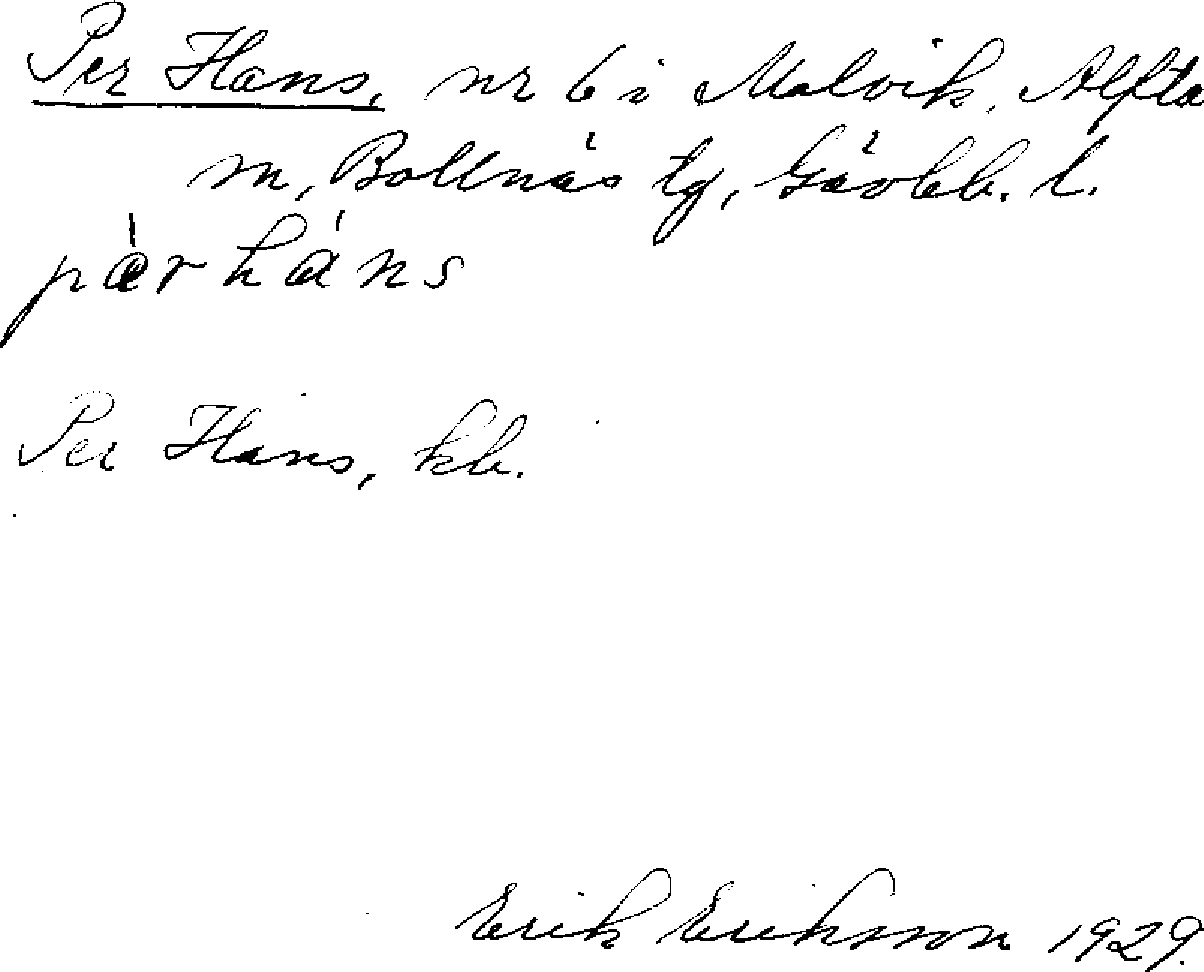 Per Hans, nr 6 i Malvik, Alfta
sn, Bollnäs tg, Gävleb. l.
pær háns
Per Hans, kb.
Erik Eriksson 1929.